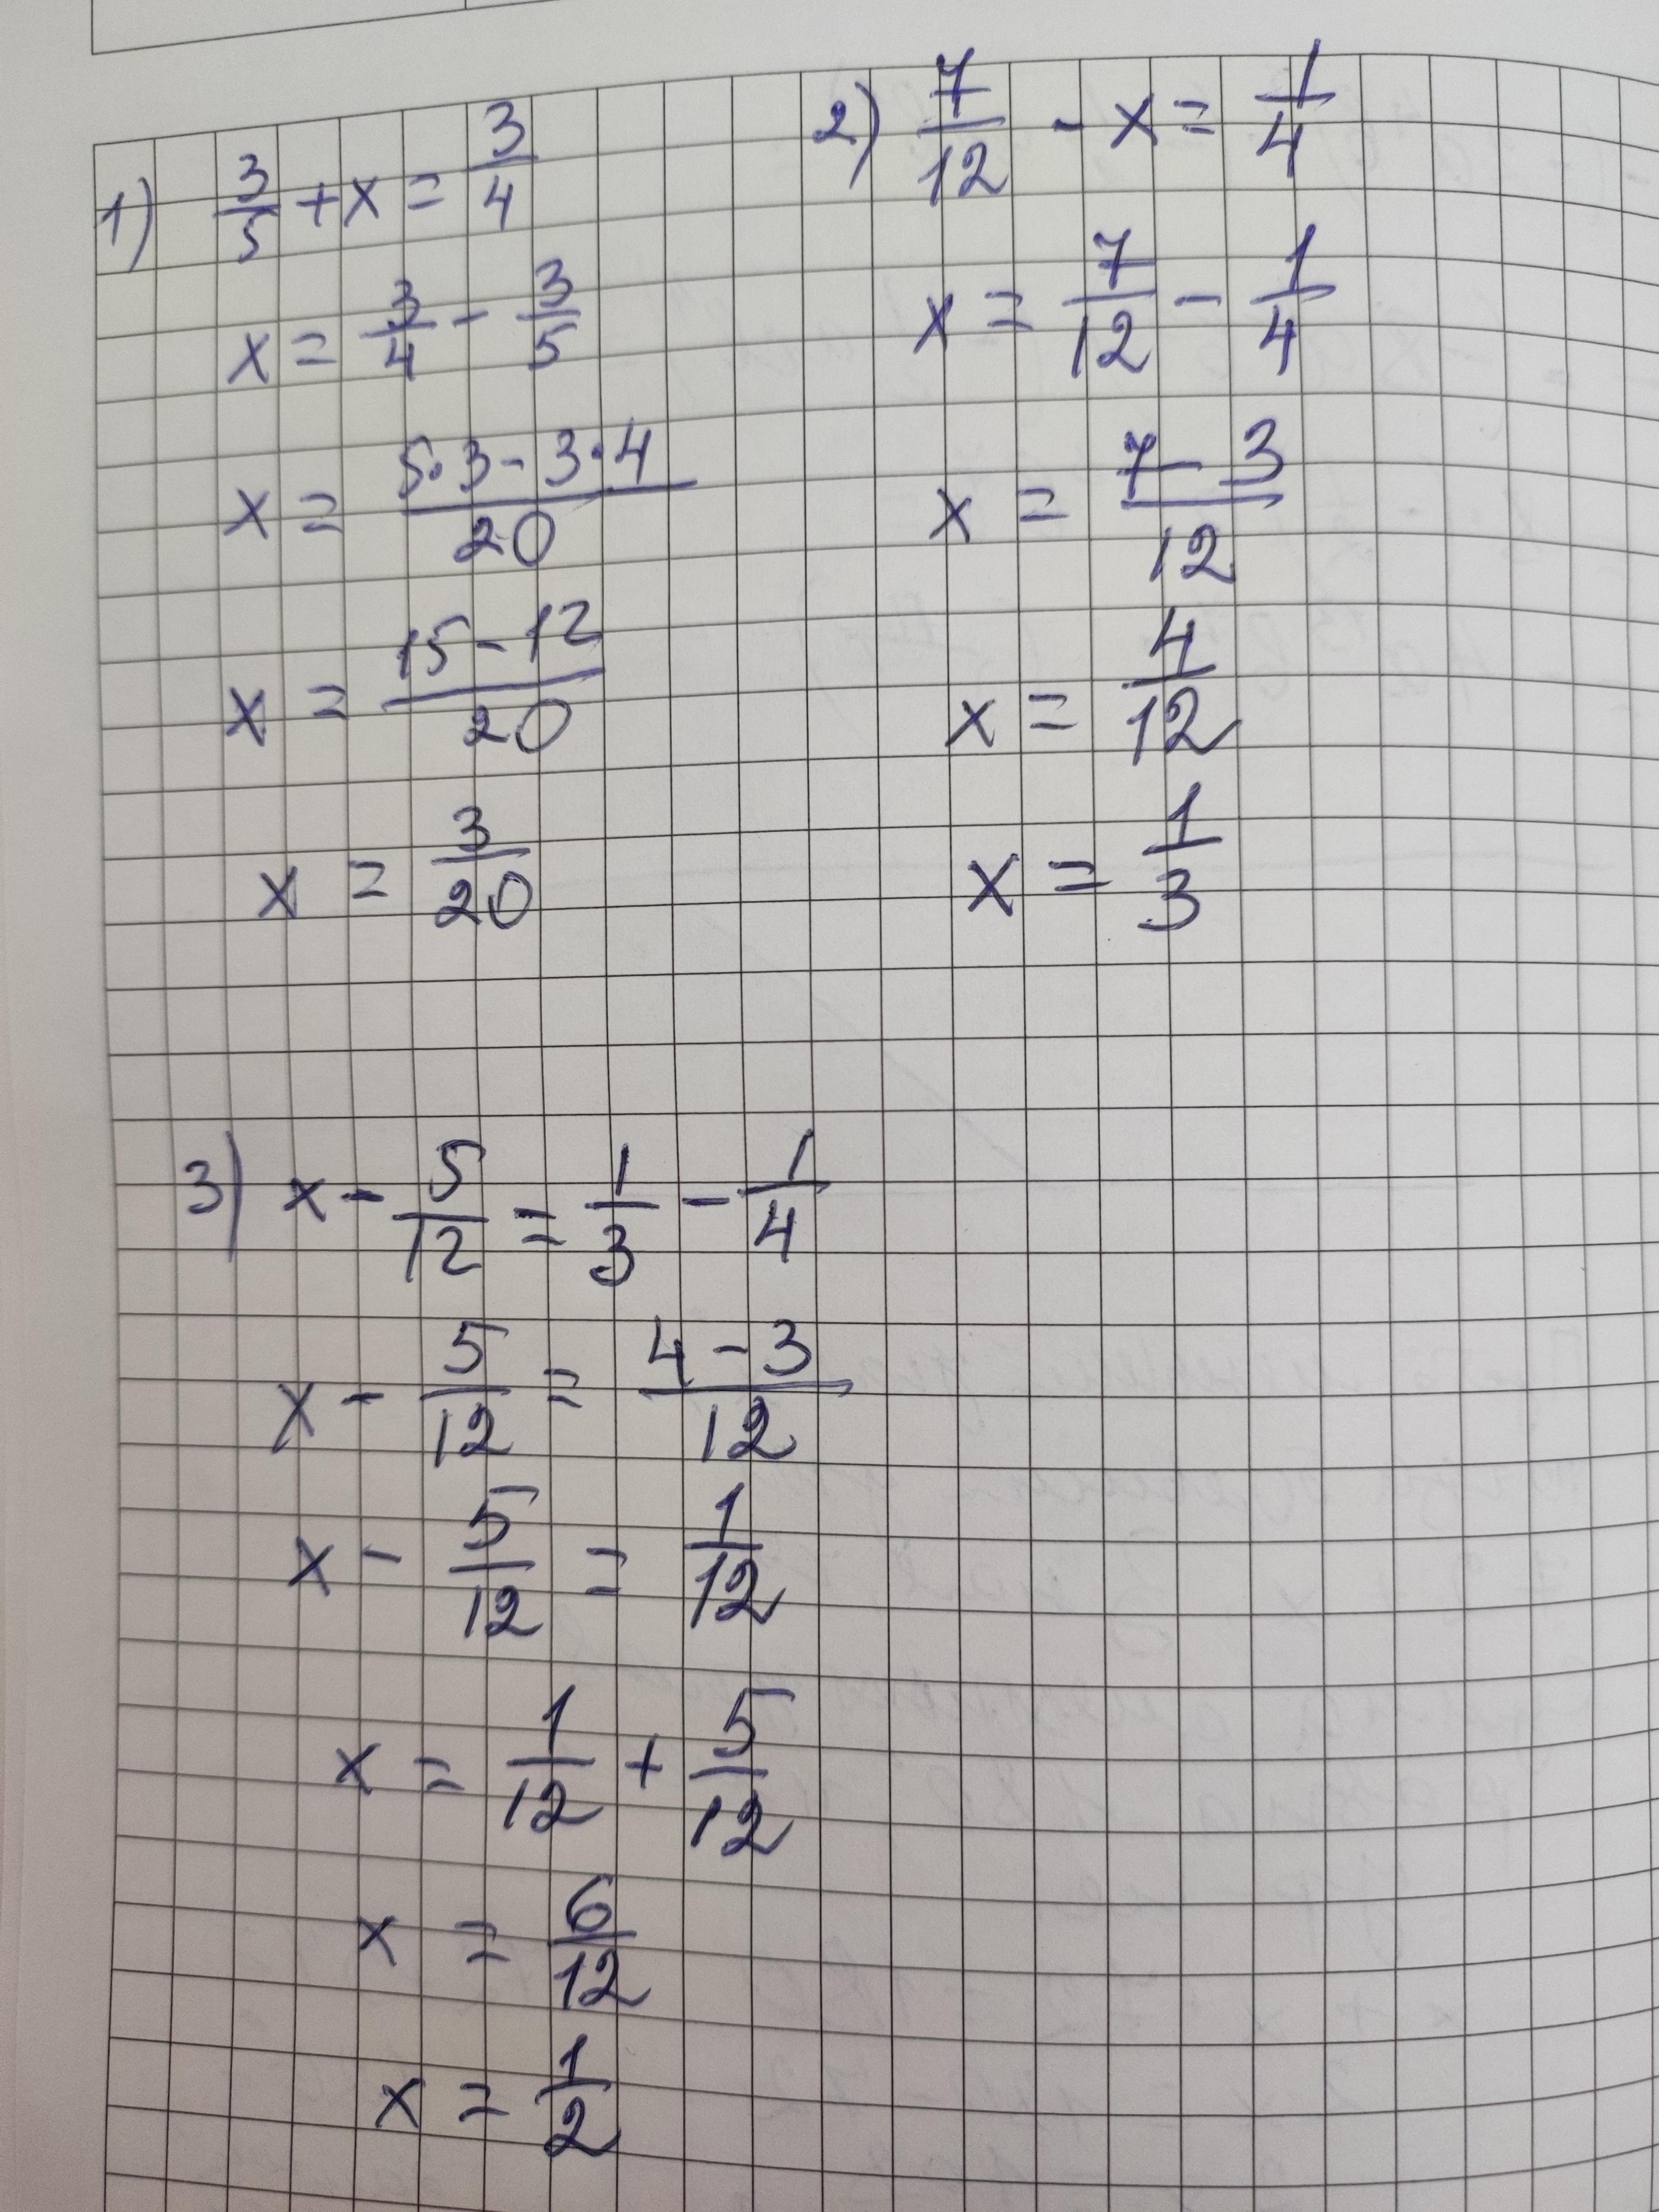 1) 3/5 + x = 3/4
x = 3/4 - 3/5
x = (5·3 - 3·4)/20
x = (15 - 12)/20
x = 3/20
2) 7/12 - x = 1/4
x = 7/12 - 1/4
x = (7 - 3)/12
x = 4/12
x = 1/3
3) x - 5/12 = 1/3 - 1/4
x - 5/12 = (4 - 3)/12
x - 5/12 = 1/12
x = 1/12 + 5/12
x = 6/12
x = 1/2